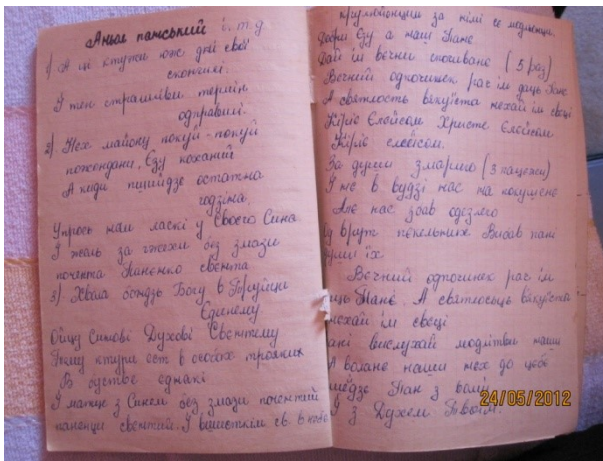 Аньол панський і. т. д
1) А ці ктужи юж дні свої
скончилі.
І тен страшліви термін
одправилі.
2). Нех майону покуй-покуй
пожендани, Єзу коханий
А кеди пшийдзе остатня
годзіна,
Упрось нам ласкі у Своего Сина
І жаль за гжехи без змази
почента Паненко свента
3) Хвала бондзь Богу в Труйци
Єдинему
Ойцу Синові Духові Свентему
Яку ктури ест в особах трояких
В бустве єднакі
І матце з Синем без змази почентий
паненци свентий. І вшисткім св. в небе
за німі се модленци.
Добри Єзу а наш Пане
Дай ім вечни спочиване (3 раз)
Вечний одпочинек рач ім даць Пане
А святлость вякуїста нехай ім свеці
Кіріє Єлейсом Христе Єлейсом
Кіріє елейсом.
За души змарлих (3 пацежи)
І не в вудзі нас на кокушене
Але нас збав одезлего
Од врут пекельних Вибав пані
души їх
Вечний одпочинек рач ім
даць Пане. А святлосьць вякуїста
нехай ім свеці
Пані вислухай модлітви наши
А волане наши нех до цебе
пшидзе Пан з вами
І з Духем Твоїм.
24/05/2012